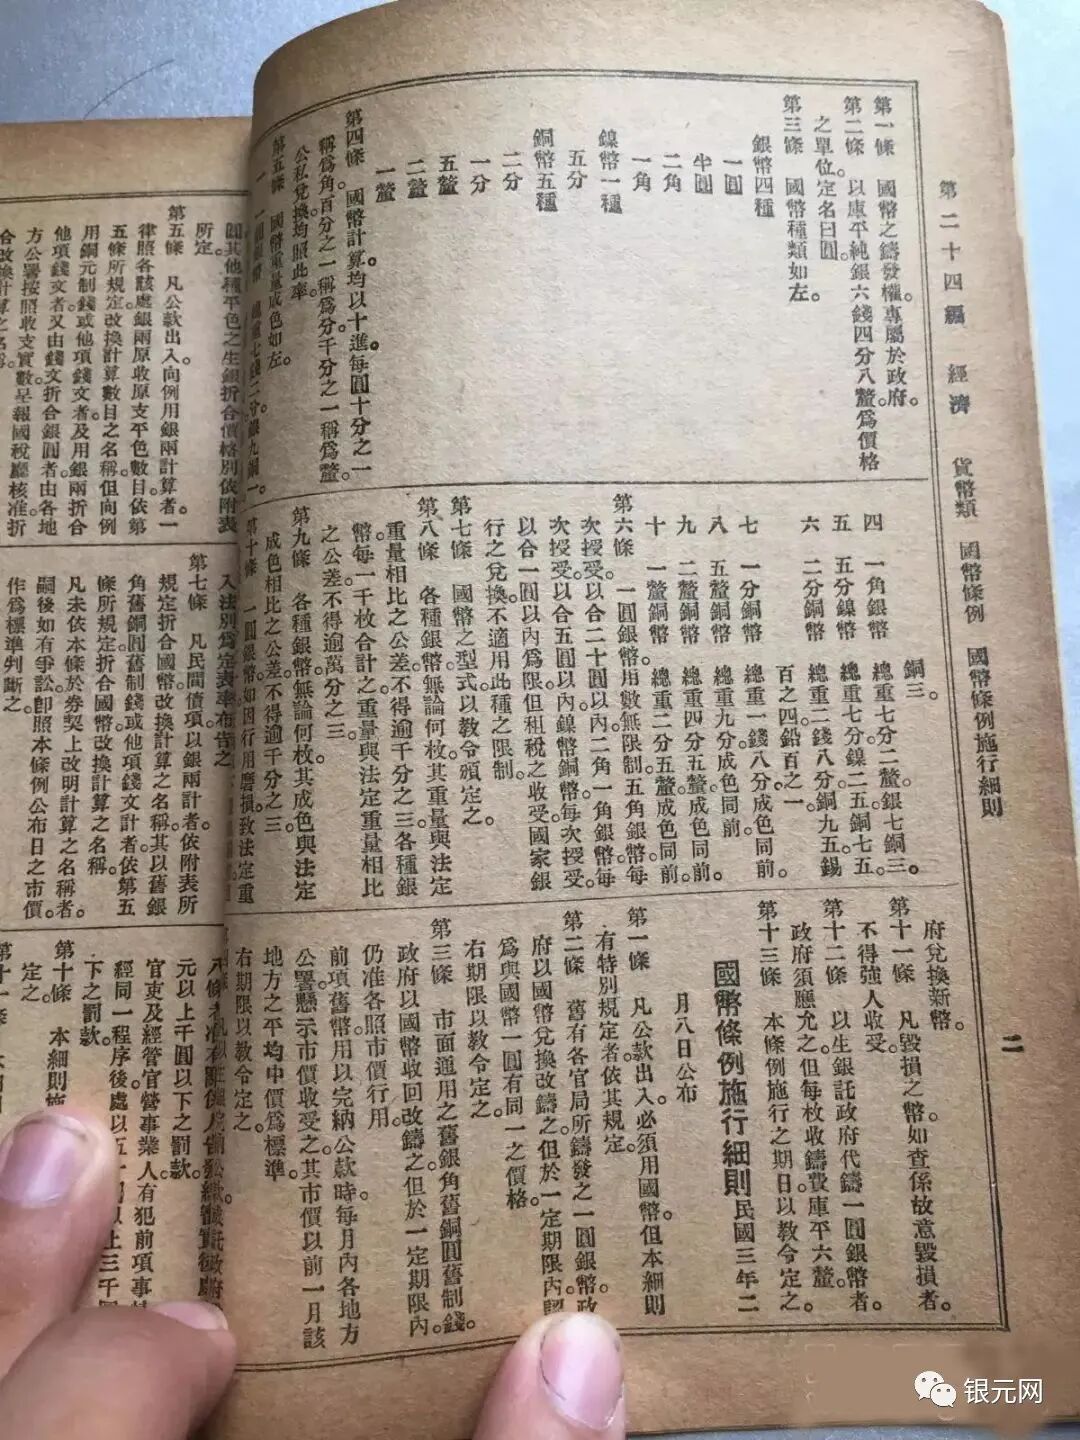 第二十四編　經濟　貨幣類　國幣條例　國幣條例施行細則
二
第一條　國幣之鑄發權專屬於政府。
第二條　以庫平純銀六錢四分八釐為價格
之單位定名曰圓。
第三條　國幣種類如左。
銀幣四種
一圓
半圓
二角
一角
鎳幣一種
五分
銅幣五種
二分
一分
五釐
二釐
一釐
第四條　國幣計算均以十進每圓十分之一
稱為角百分之一稱為分千分之一稱為釐。
公私兌換均照此率。
第五條　國幣重量成色如左。
一　一圓銀幣　總重七錢二分銀九銅一。
銅三。
四　一角銀幣　總重七分二釐。銀七銅三。
五　五分鎳幣　總重七分鎳二五。銅七五。
六　二分銅幣　總重二錢八分銅九五錫
百之四。鉛百之一。
七　一分銅幣　總重一錢八分成色同前。
八　五釐銅幣　總重九分成色同前。
九　二釐銅幣　總重四分五釐成色同前。
十　一釐銅幣　總重二分五釐成色同前。
第六條　一圓銀幣。用數無限制。五角銀幣。每
次授受。以合二十圓以內。二角一角銀幣。每
次授受以合五圓以內鎳幣銅幣。每次授受。
以合一圓以內為限但租稅之收受國家銀
行之兌換不適用此種之限制。
第七條　國幣之型式以教令頒定之。
第八條　各種銀幣無論何枚其重量與法定
重量相比之公差。不得逾千分之三各種銀
幣每一千枚合計之。重量與法定重量相比
之公差不得逾萬分之三。
第九條　各種銀幣無論何枚其成色與法定
成色相比之公差。不得逾千分之三。
第十條　一圓銀幣。如因行用磨損致法定重
府兌換新幣。
第十一條　凡毀損之幣如查係故意毀損者。
不得強人收受。
第十二條　以生銀託政府代鑄一圓銀幣者。
政府須應允之。但每枚收鑄費庫平六釐。
第十三條　本條例施行之期日以教令定之。
國幣條例施行細則民國三年二
月八日公布
第一條　凡公款出入必須用國幣但本細則
有特別規定者依其規定。
第二條　舊有各官局所鑄發之一圓銀幣。政
府以國幣兌換改鑄之。但於一定期限內認
為與國幣一圓有同一之價格。
右期限以教令定之。
第三條　市面通用之舊銀角舊銅圓舊制錢。
政府以國幣收回改鑄之。但於一定期限內
仍准各照市價行用。
前項舊幣。用以完納公款時每月內各地方
公署懸示市價收受之。其市價以前一月該
地方之平均中價為標準。
右期限以教令定之。
圓其他種平色之生銀折合價格別依附表
所定。
第五條　凡公款出入向例用銀兩計算者。一
律照各該處銀兩原收原支平色數目。依第
五條所規定。改換計算數目之名稱但向例
用銅元制錢或他項錢文者及用銀兩折合
他項錢文者。又由錢文折合銀圓者由各地
方公署按照收支實數。呈報國稅廳核准。折
合改換計算之名稱。
入法別為定表率布告之
第七條　凡民間債項。以銀兩計者。依附表所
規定折合國幣。改換計算之名稱其以舊銀
角舊銅圓舊制錢或他項錢文計者。依第五
條所規定。折合國幣改換計算之名稱。
凡未依本條於券契上改明計算之名稱者。
嗣後如有爭訟。即照本條例公布日之市價。
作為標準判斷之。
元以上千圓以下之罰款。
官吏及經管官營事業人有犯前項事
經同一程序後。處以五十圓以上三千
下之罰款。
第十條　本細則施
定之。
銀元网